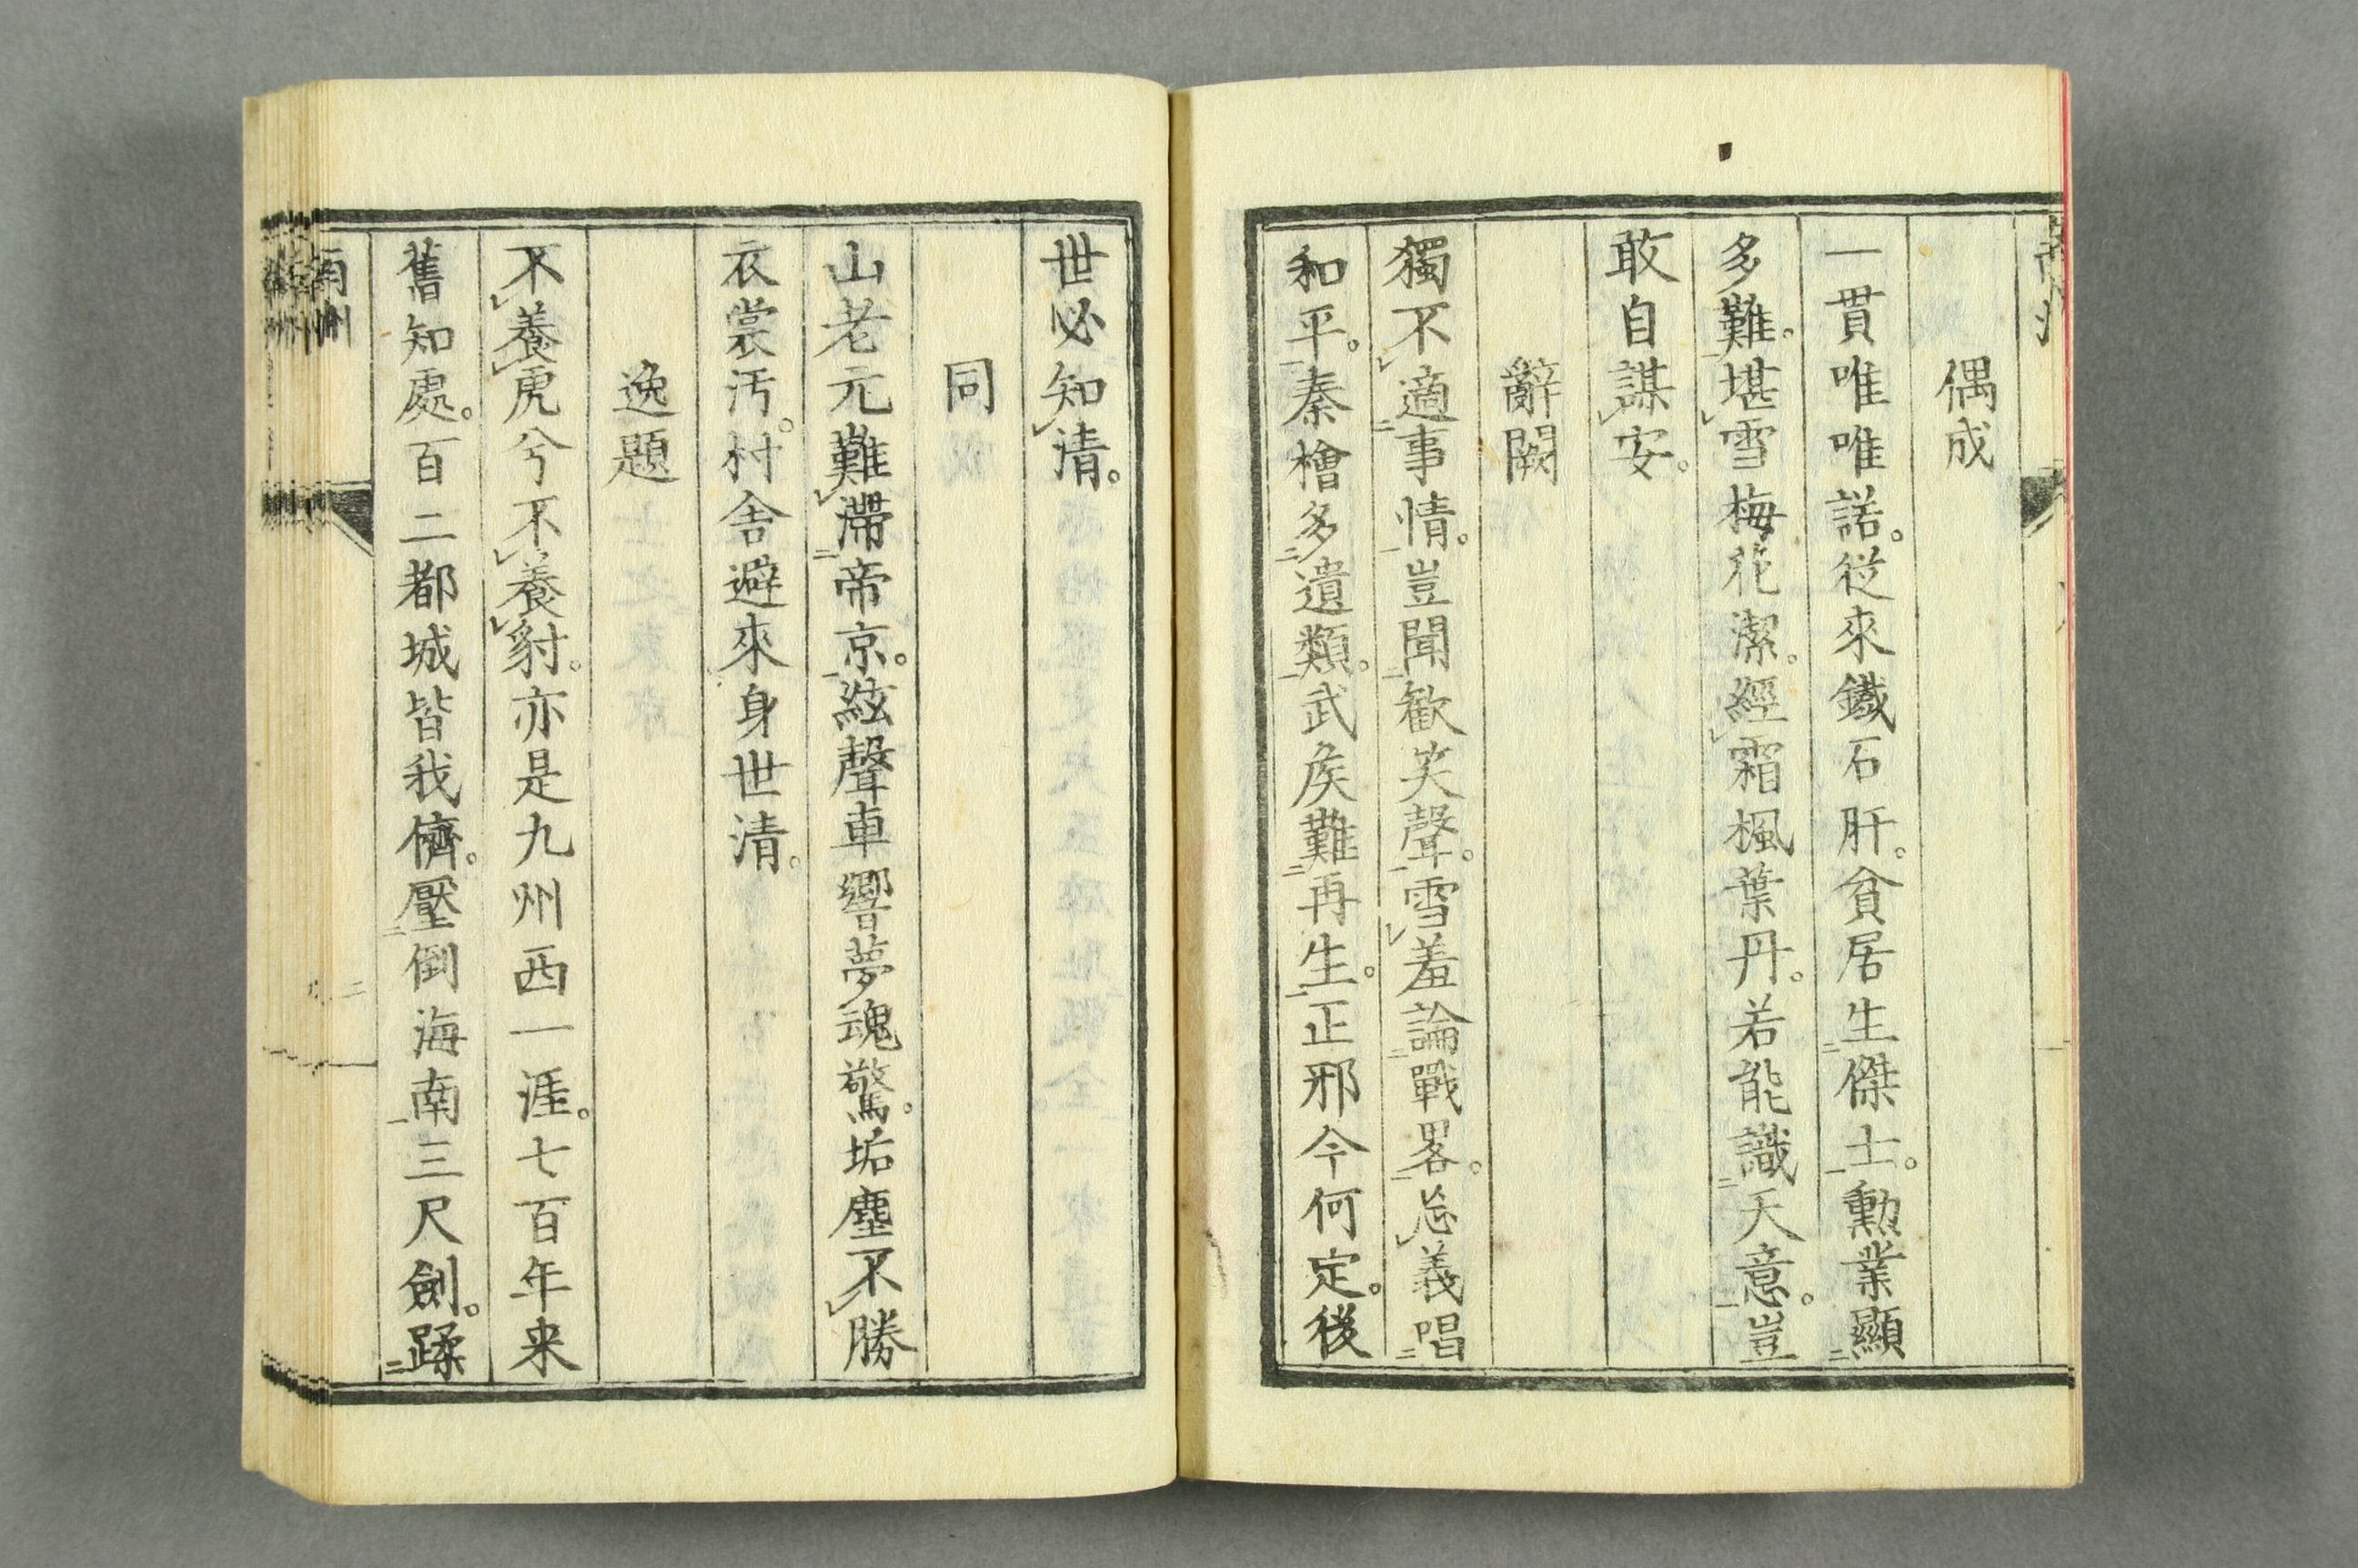 偶成
一貫唯唯諾。從來鐵石肝。貧居生傑士。勲業顯
多難。堪雪梅花潔。經霜楓葉丹。若能識天意。豈
敢自謀安。
辭闕
獨不適事情。豈聞歓笑聲。雪羞論戰畧。忘義唱
和平。秦檜多遺類。武矦難再生。正邪今何定。後
世必知清。
同
山老元難滯帝京。絃聲車響夢魂驚。垢塵不勝
衣裳汚。村舎避來身世清。
逸題
不養虎兮不養豺。亦是九州西一涯。七百年来
舊知處。百二都城皆我儕。壓倒海南三尺劍。蹂
南州